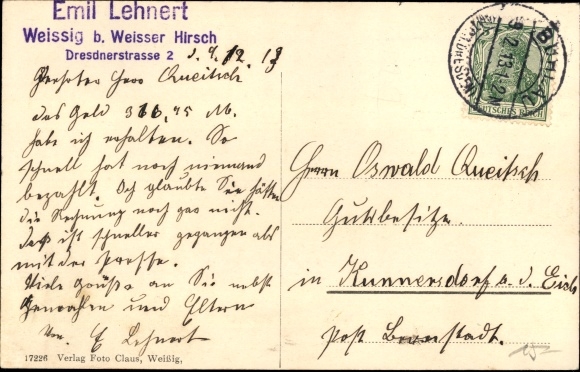 Emil Lehnert
Weissig b. Weisser Hirsch
Dresdnerstrasse 2
d. 9.12.13
Herr Queitsch.
das Geld 316,45 M.
habe ich erhalten. So
schnell hat noch niemand
bezahlt. Ich glaubte Sie hätten
die Rechnung noch gar nicht.
Daß ist schneller gegangen als
mit der Presse.
Viele Grüße an Sie nebst
und Eltern
Von E Lehnert
17226 Verlag Foto Claus, Weißig,
BÜHLAU
9.12.13
DEUTSCHES REICH
Herrn Oswald Queitsch
Gutsbesitze.
in Kunnersdorf a. d. Eig
Post Bernstadt.